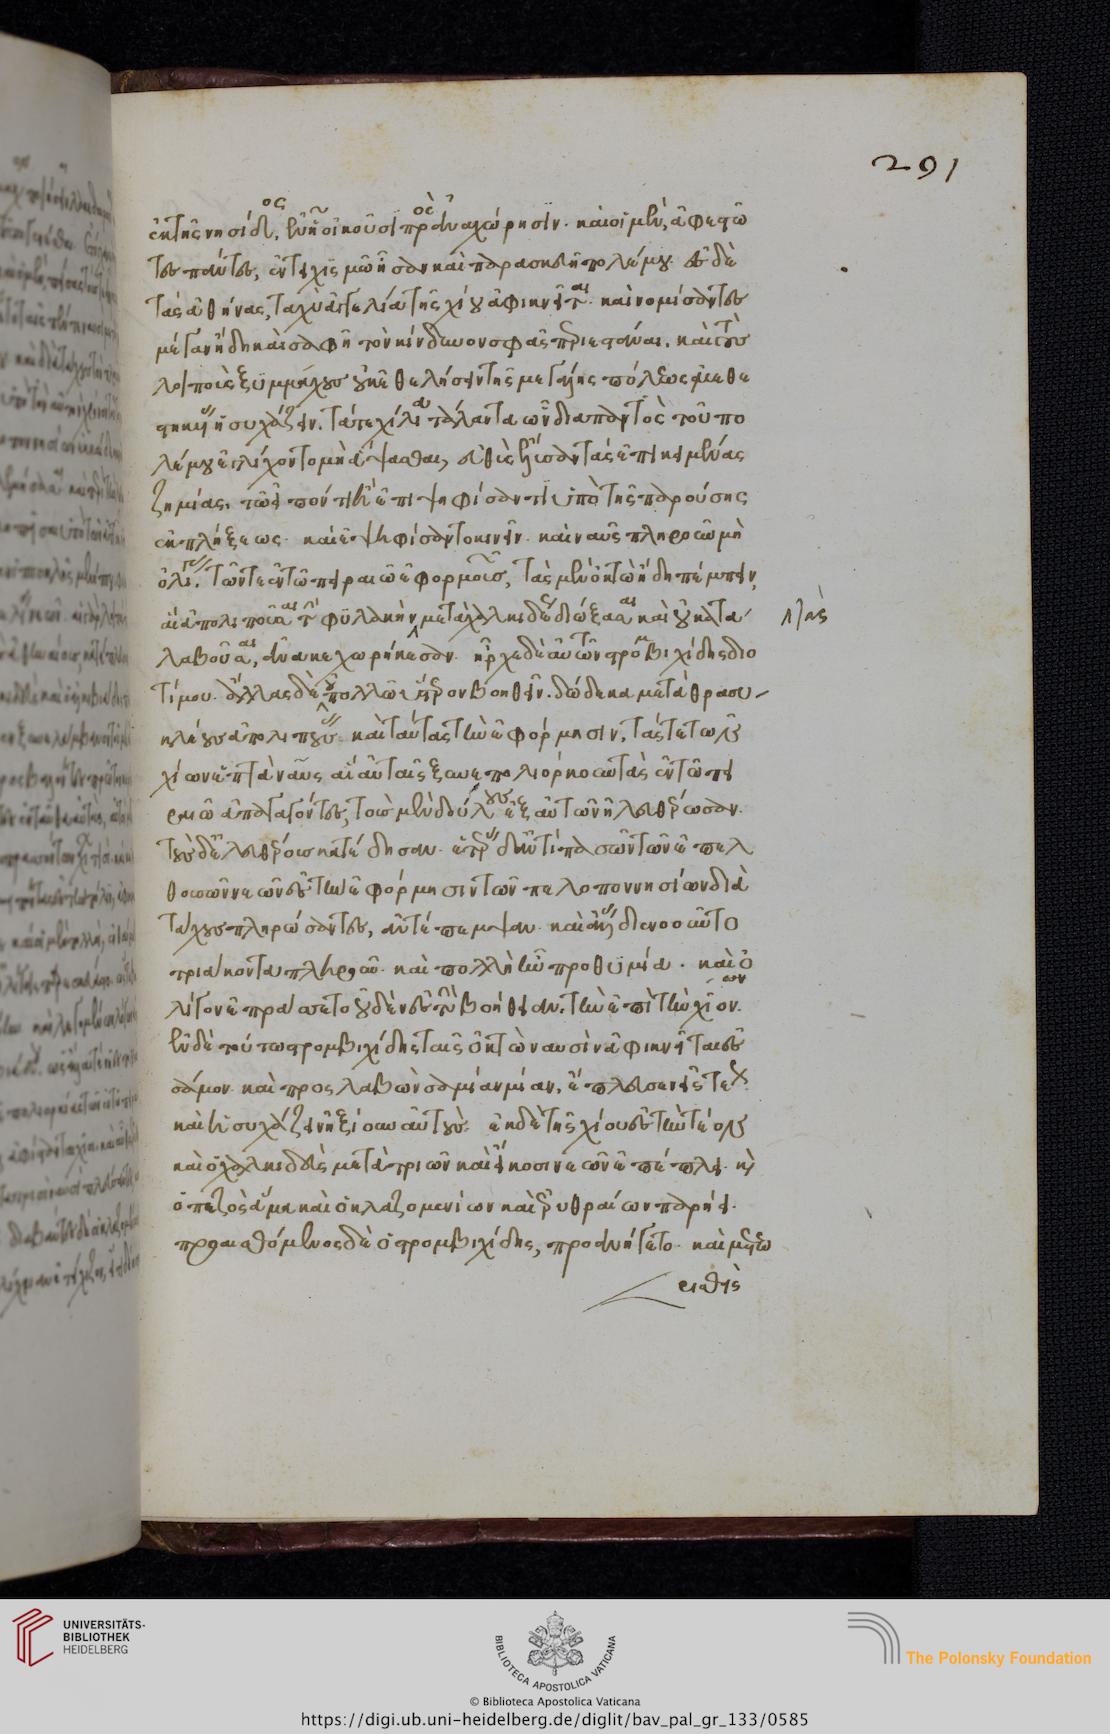 291
ἐκ τῆς νησίδος, ἐν ᾗ οἰκοῦσι πρὸς ἀναχώρησιν. καὶ οἱ μὲν, ἀφεστῶ
τες πάντες, ἐν τειχισμῷ ἦσαν καὶ παρασκευῇ πολέμου. ἐς δὲ
τὰς ἀθήνας, ταχὺ ἀγγελία τῆς χίου ἀφικνεῖται. καὶ νομίσαντες
μέγαν ἤδη καὶ σαφῆ τὸν κίνδυνον σφᾶς περιεστάναι. καὶ τοὺς
λοιποὺς ξυμμάχους οὐκ ἐθελήσειν τῆς μεγίστης πόλεως μεθε
στηκυίας ἡσυχάζειν. τά τε χίλια τάλαντα ὧν διὰ παντὸς τοῦ πο
λέμου ἐγλίχοντο μὴ ἅψασθαι, εὐθὺς ἔλυσαν τὰς ἐπικειμένας
ζημίας. τῷ εἰπόντι ἢ ἐπιψηφίσαντι ὑπὸ τῆς παρούσης
ἐκπλήξεως. καὶ ἐψηφίσαντο κινεῖν. καὶ ναῦς πληροῦν μὴ
ὀλίγας. τῶν τε ἐν τῷ πειραιῷ ἐφορμουσῶν, τὰς μὲν ὀκτὼ ἤδη πέμπειν,
αἳ ἀπολιποῦσαι τὴν φυλακὴν μετὰ χαλκιδέως διώξασαι καὶ οὐ κατα
τὰς
λαβοῦσαι, ἀνακεχωρήκεσαν. ἦρχε δὲ αὐτῶν στρομβιχίδης διο
τίμου. ἄλλας δὲ οὐ πολλῷ ὕστερον βοηθεῖν. δώδεκα μετὰ θρασυ
κλέους ἀπολιπούσας καὶ ταύτας τὴν ἐφόρμησιν, τάς τε τῶν
χίων ἑπτὰ ναῦς αἳ αὐταῖς ξυνεπολιόρκουν τὰς ἐν τῷ πει
ραιῷ ἀπαγαγόντες, τοὺς μὲν δούλους ἐξ αὐτῶν ἠλευθέρωσαν.
τοὺς δ' ἐλευθέρους κατέδησαν. ἑτέρας δ' ἀντὶ πασῶν τῶν ἐπελ
θουσῶν νεῶν ἐς τὴν ἐφόρμησιν τῶν πελοποννησίων διὰ
τάχους πληρώσαντες, ἀντέπεμψαν. καὶ ἄλλας διενοοῦντο
τριάκοντα πληροῦν. καὶ πολλὴ ἦν προθυμία. καὶ ὀ
λίγον ἐπράσσετο οὐδὲν ἐς τὴν βοήθειαν. τὴν ἐπὶ τὴν χίον.
ἐν δὲ τούτῳ στρομβιχίδης ταῖς ὀκτὼ ναυσὶν ἀφικνεῖται ἐς
σάμον. καὶ προσλαβὼν σαμίαν μίαν, ἔπλευσεν ἐς τέων
καὶ ἡσυχάζειν ἠξίου αὐτούς. ἐκ δὲ τῆς χίου ἐς τὴν τέων
καὶ ὁ χαλκιδεὺς μετὰ τριῶν καὶ εἴκοσι νεῶν ἐπέπλει. καὶ
ὁ πεζὸς ἅμα καὶ ὁ κλαζομενίων καὶ ἐρυθραίων παρῄει.
προαισθόμενος δὲ ὁ στρομβιχίδης, προανήγετο. καὶ μετεω
ρισθεὶς
UNIVERSITÄTS-
BIBLIOTHEK
HEIDELBERG
BIBLIOTECA APOSTOLICA VATICANA
© Biblioteca Apostolica Vaticana
The Polonsky Foundation
https://digi.ub.uni-heidelberg.de/diglit/bav_pal_gr_133/0585